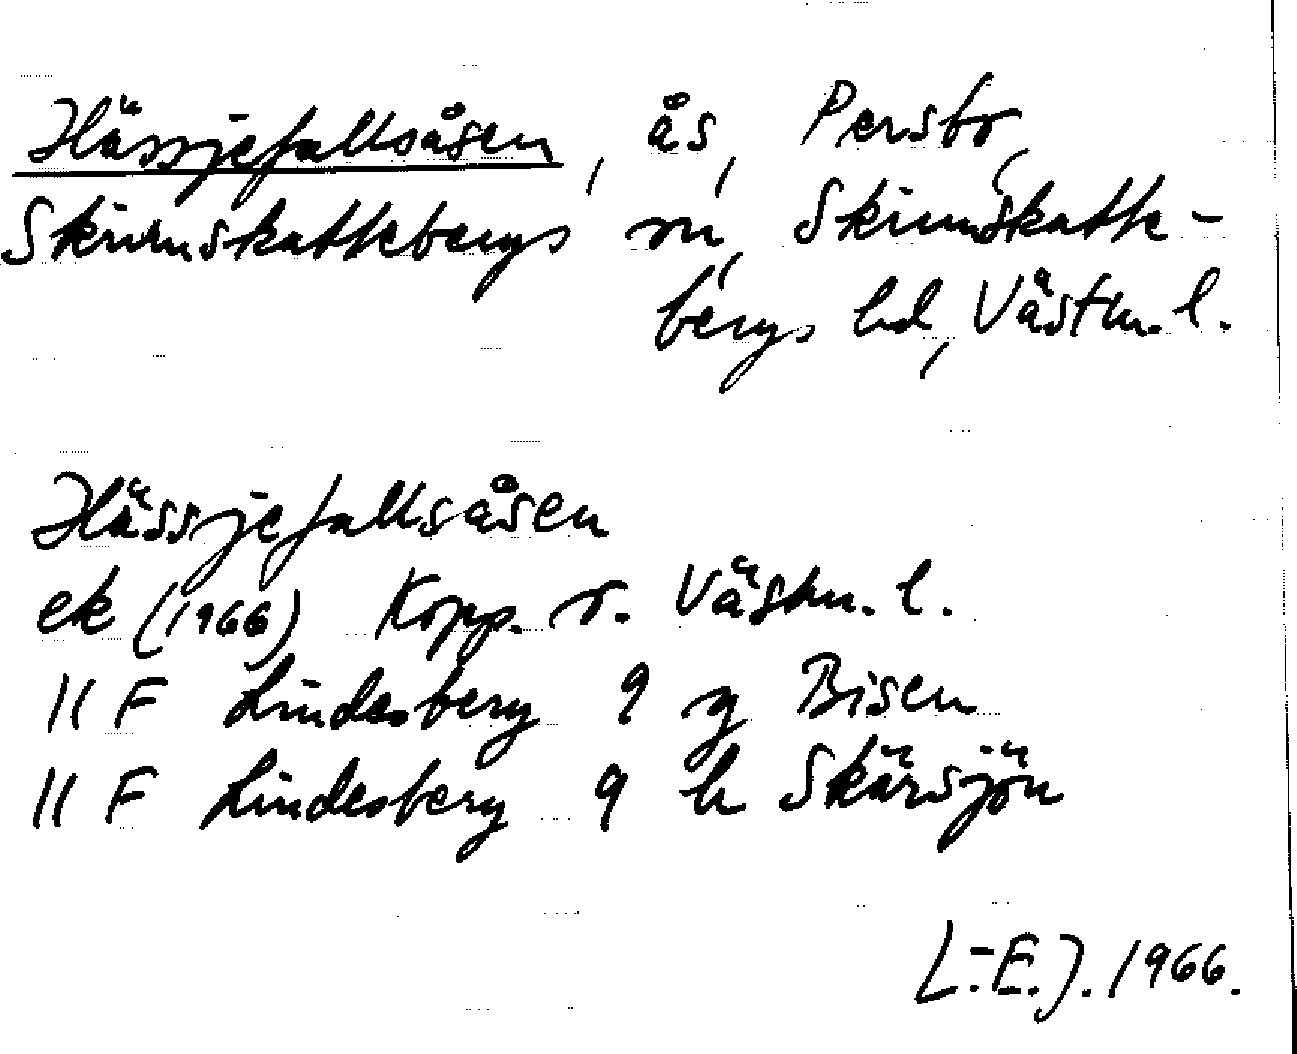 Hässjefallsåsen, ås, Persbo,
Skinnskattebergs sn, Skinnskatte-
bergs hd, Västm. l.
Hässjefallsåsen
ek (1966) Kopp. r. Västm. l.
11 F Lindesberg 9 g Bisen
11 F Lindesberg 9 h Skärsjön
L.-E. J. 1966.